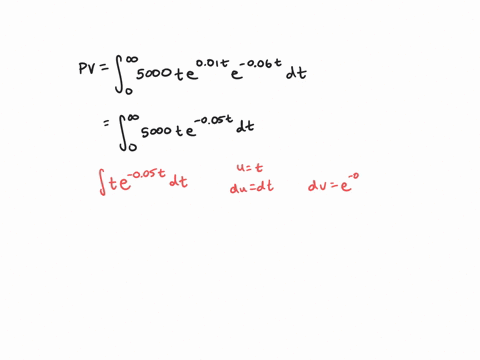 PV = ∫₀^∞ 5000 t e^{0.01t} e^{-0.06t} dt
= ∫₀^∞ 5000 t e^{-0.05t} dt
∫ t e^{-0.05t} dt u = t
du = dt dv = e^{-0